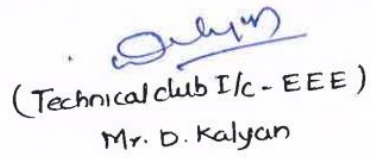 (Technical club I/c - EEE)
Mr. D. Kalyan